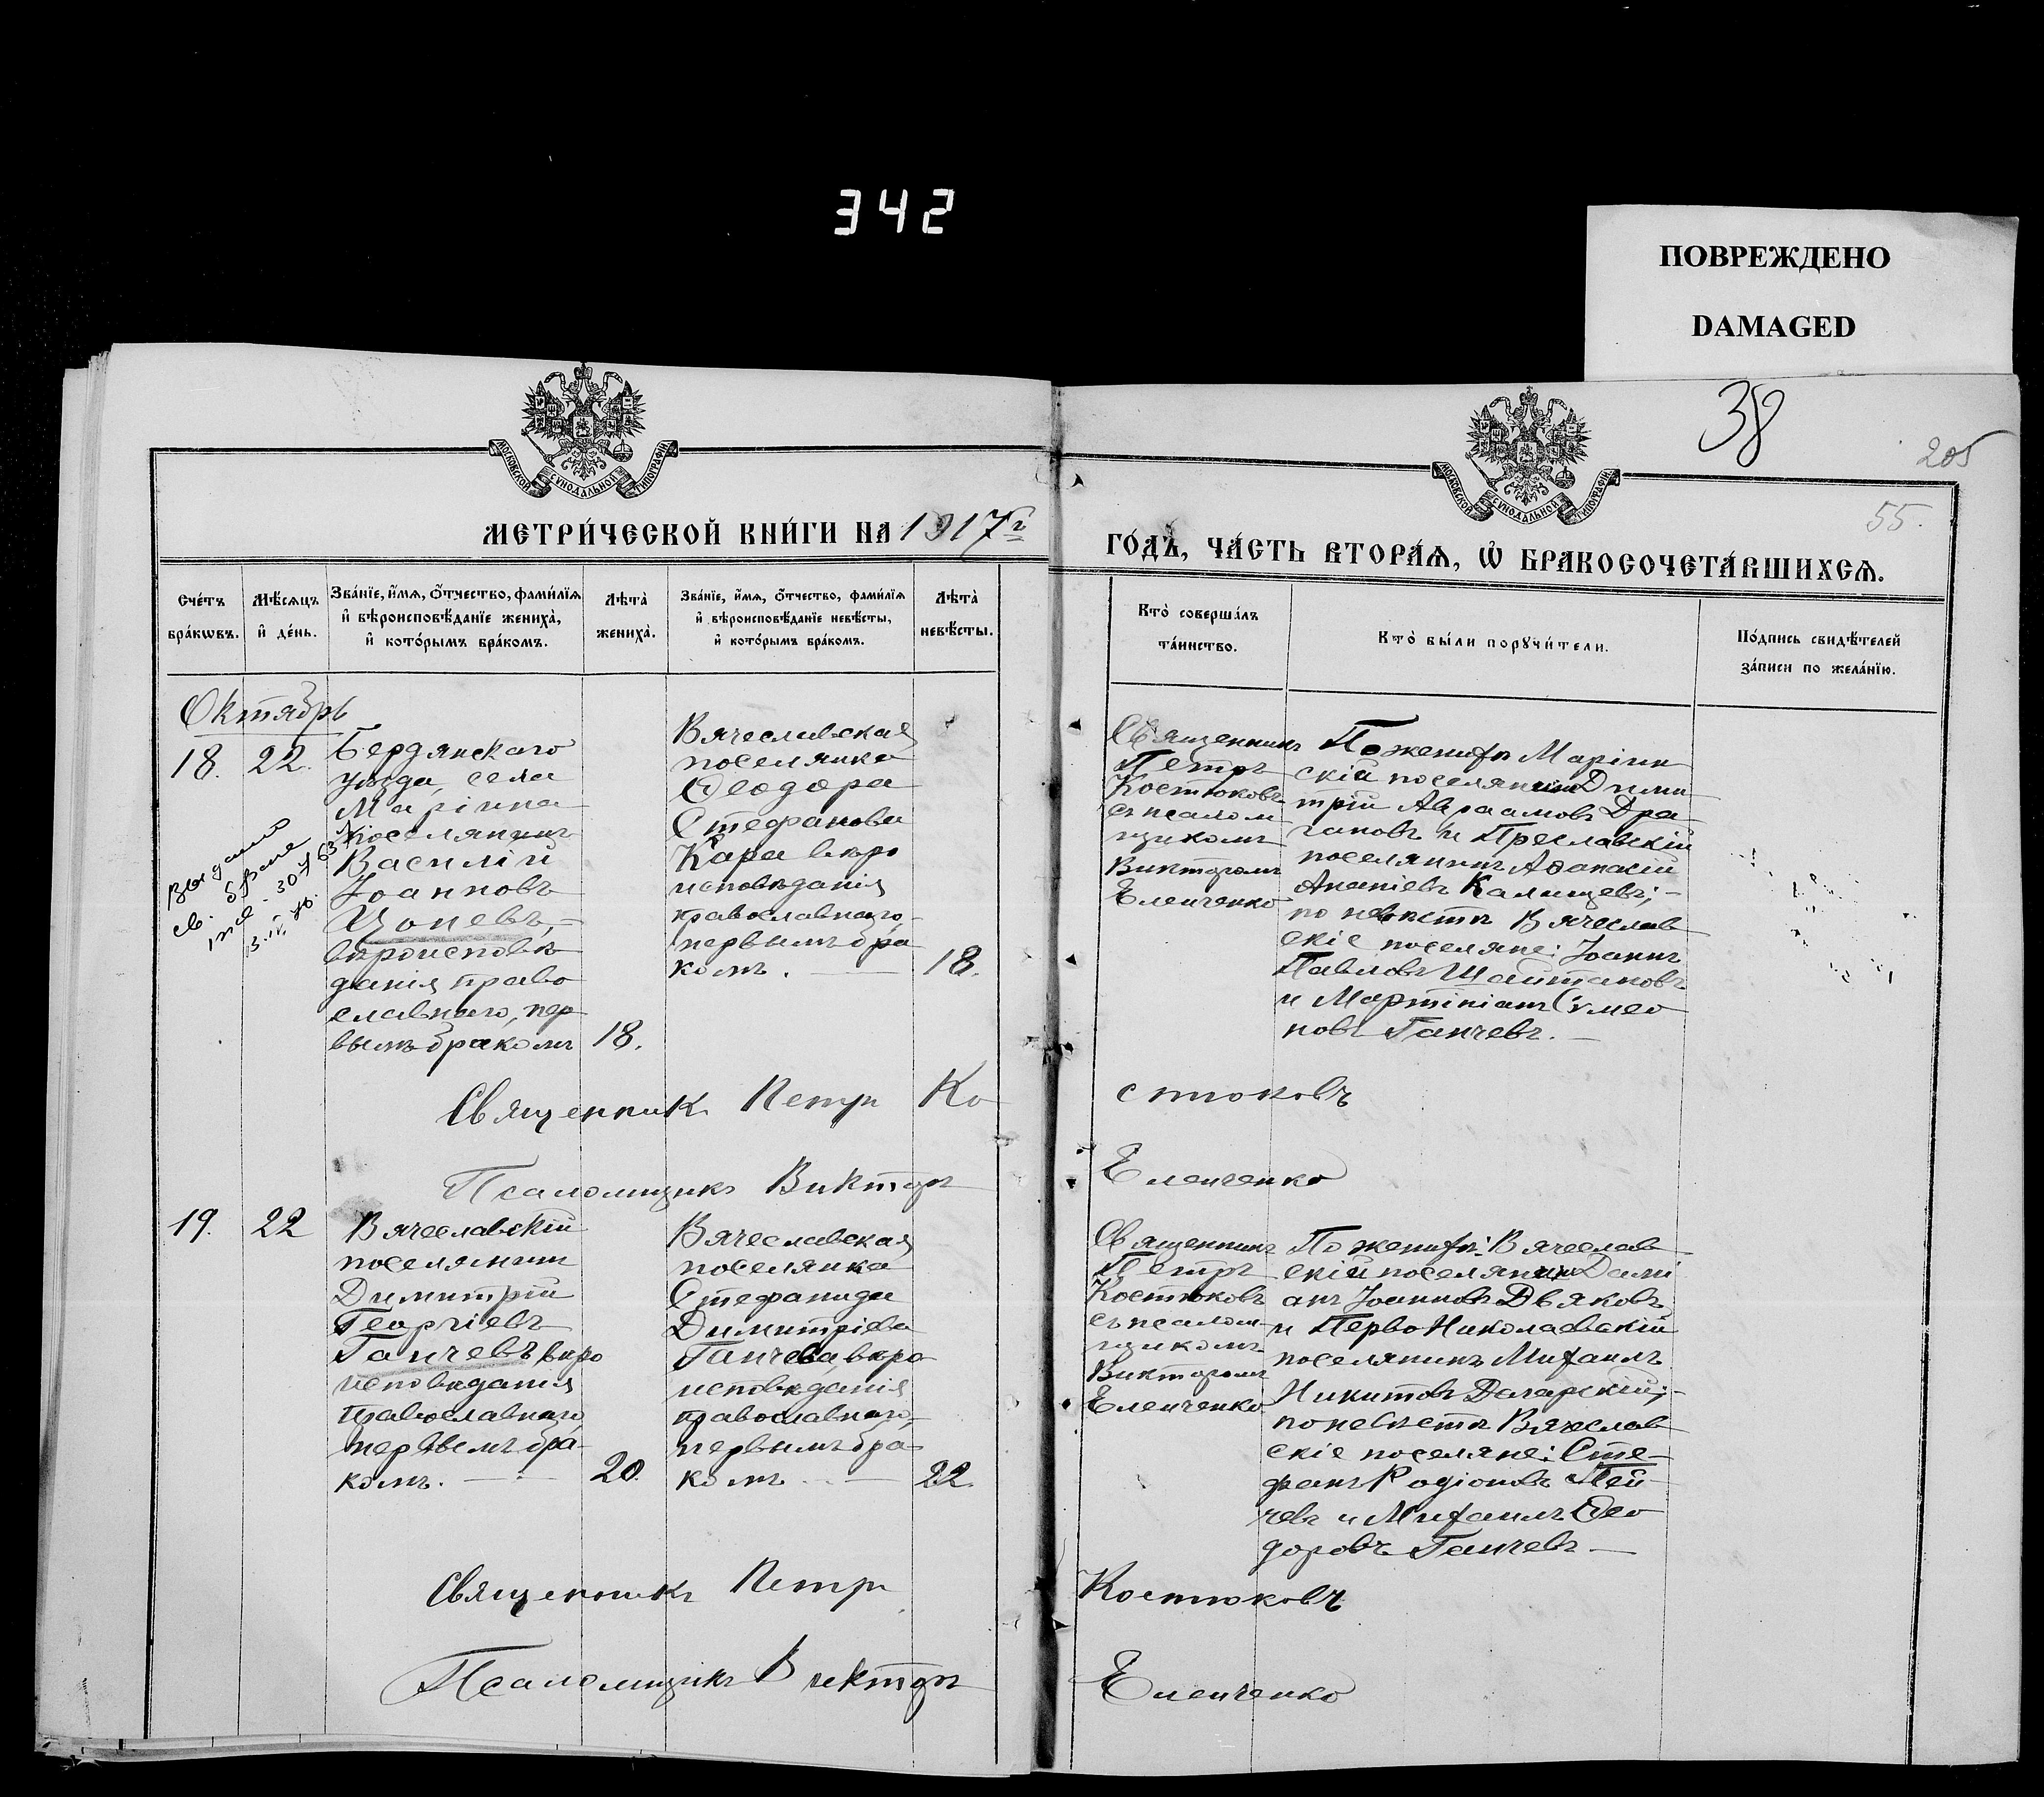 342
ПОВРЕЖДЕНО
DAMAGED
38
205
55.
МОСКОВСКОЙ СУНОДАЛЬНОЙ ТИПОГРАФІИ
МОСКОВСКОЙ СУНОДАЛЬНОЙ ТИПОГРАФІИ
МЕТРИ́ЧЕСКОЙ КНИ́ГИ НА 1917 г
ГО́ДЪ, ЧА́СТЬ ВТОРА́Ѧ, Ѡ҆ БРАКОСОЧЕТА́ВШИХСѦ.
Сче́тъ
бра́кѡвъ.
Мѣ́сѧцъ
и҆ де́нь.
Зва́нїе, и҆́мѧ, ѻ҆́тчество, фами́лїѧ
и҆ вѣроисповѣ́данїе жениха̀,
и҆ кото́рымъ бра́комъ.
Лѣ́та̀
жениха̀.
Зва́нїе, и҆́мѧ, ѻ҆́тчество, фами́лїѧ
и҆ вѣроисповѣ́данїе невѣ́сты,
и҆ кото́рымъ бра́комъ.
Лѣ́та̀
невѣ́сты.
Кто̀ соверша́лъ
та́инство.
Кто̀ бы́ли порꙋчи́тели.
По́дпись свидѣ́телей
за́писи по жела́нїю.
Октябрь
18.
22.
Бердянскаго
уѣзда, села
Маріина
поселянинъ
Василій
Іоанновъ
Цоневъ,—
вѣроисповѣ
данія право
славнаго, пер
вымъ бракомъ
18.
Вячеславская
поселянка
Ѳеодора
Стефанова
Кара вѣро
исповѣданія
православнаго,
первымъ бра
комъ. —
18.
Священникъ
Петръ
Костюковъ
съ псалом
щикомъ
Викторомъ
Еленченко
По женихѣ Маріин
скій поселянинъ Дими
трій Авраамовъ Дра
гановъ и Преславскій
поселянинъ Аѳанасій
Ананіевъ Калищевъ;—
по невѣстѣ Вячеслав
скіе поселяне: Іоаннъ
Павловъ Шайтановъ
и Мартиніанъ Сумео
новъ Ганчевъ. —
Священникъ Петръ Ко
стюковъ
Псаломщикъ Викторъ
Еленченко
19.
22
Вячеславскій
поселянинъ
Димитрій
Георгіевъ
Ганчевъ вѣро
исповѣданія
православнаго,
первымъ бра
комъ. —
20.
Вячеславская
поселянка
Стефанида
Димитріева
Ганчева вѣро
исповѣданія
православнаго,
первымъ бра
комъ. —
22.
Священникъ
Петръ
Костюковъ
съ псалом
щикомъ
Викторомъ
Еленченко
По женихѣ: Вячеслав
скій поселянинъ Дамі
анъ Іоанновъ Дьяковъ
и Перво Николаевскій
поселянинъ Михаилъ
Никитовъ Дагарскій;—
по невѣстѣ Вячеслав
скіе поселяне: Сте
фанъ Родіоновъ Пей
чевъ и Михаилъ Ѳео
доровъ Ганчевъ —
Священникъ Петръ
Костюковъ
Псаломщикъ Викторъ
Еленченко